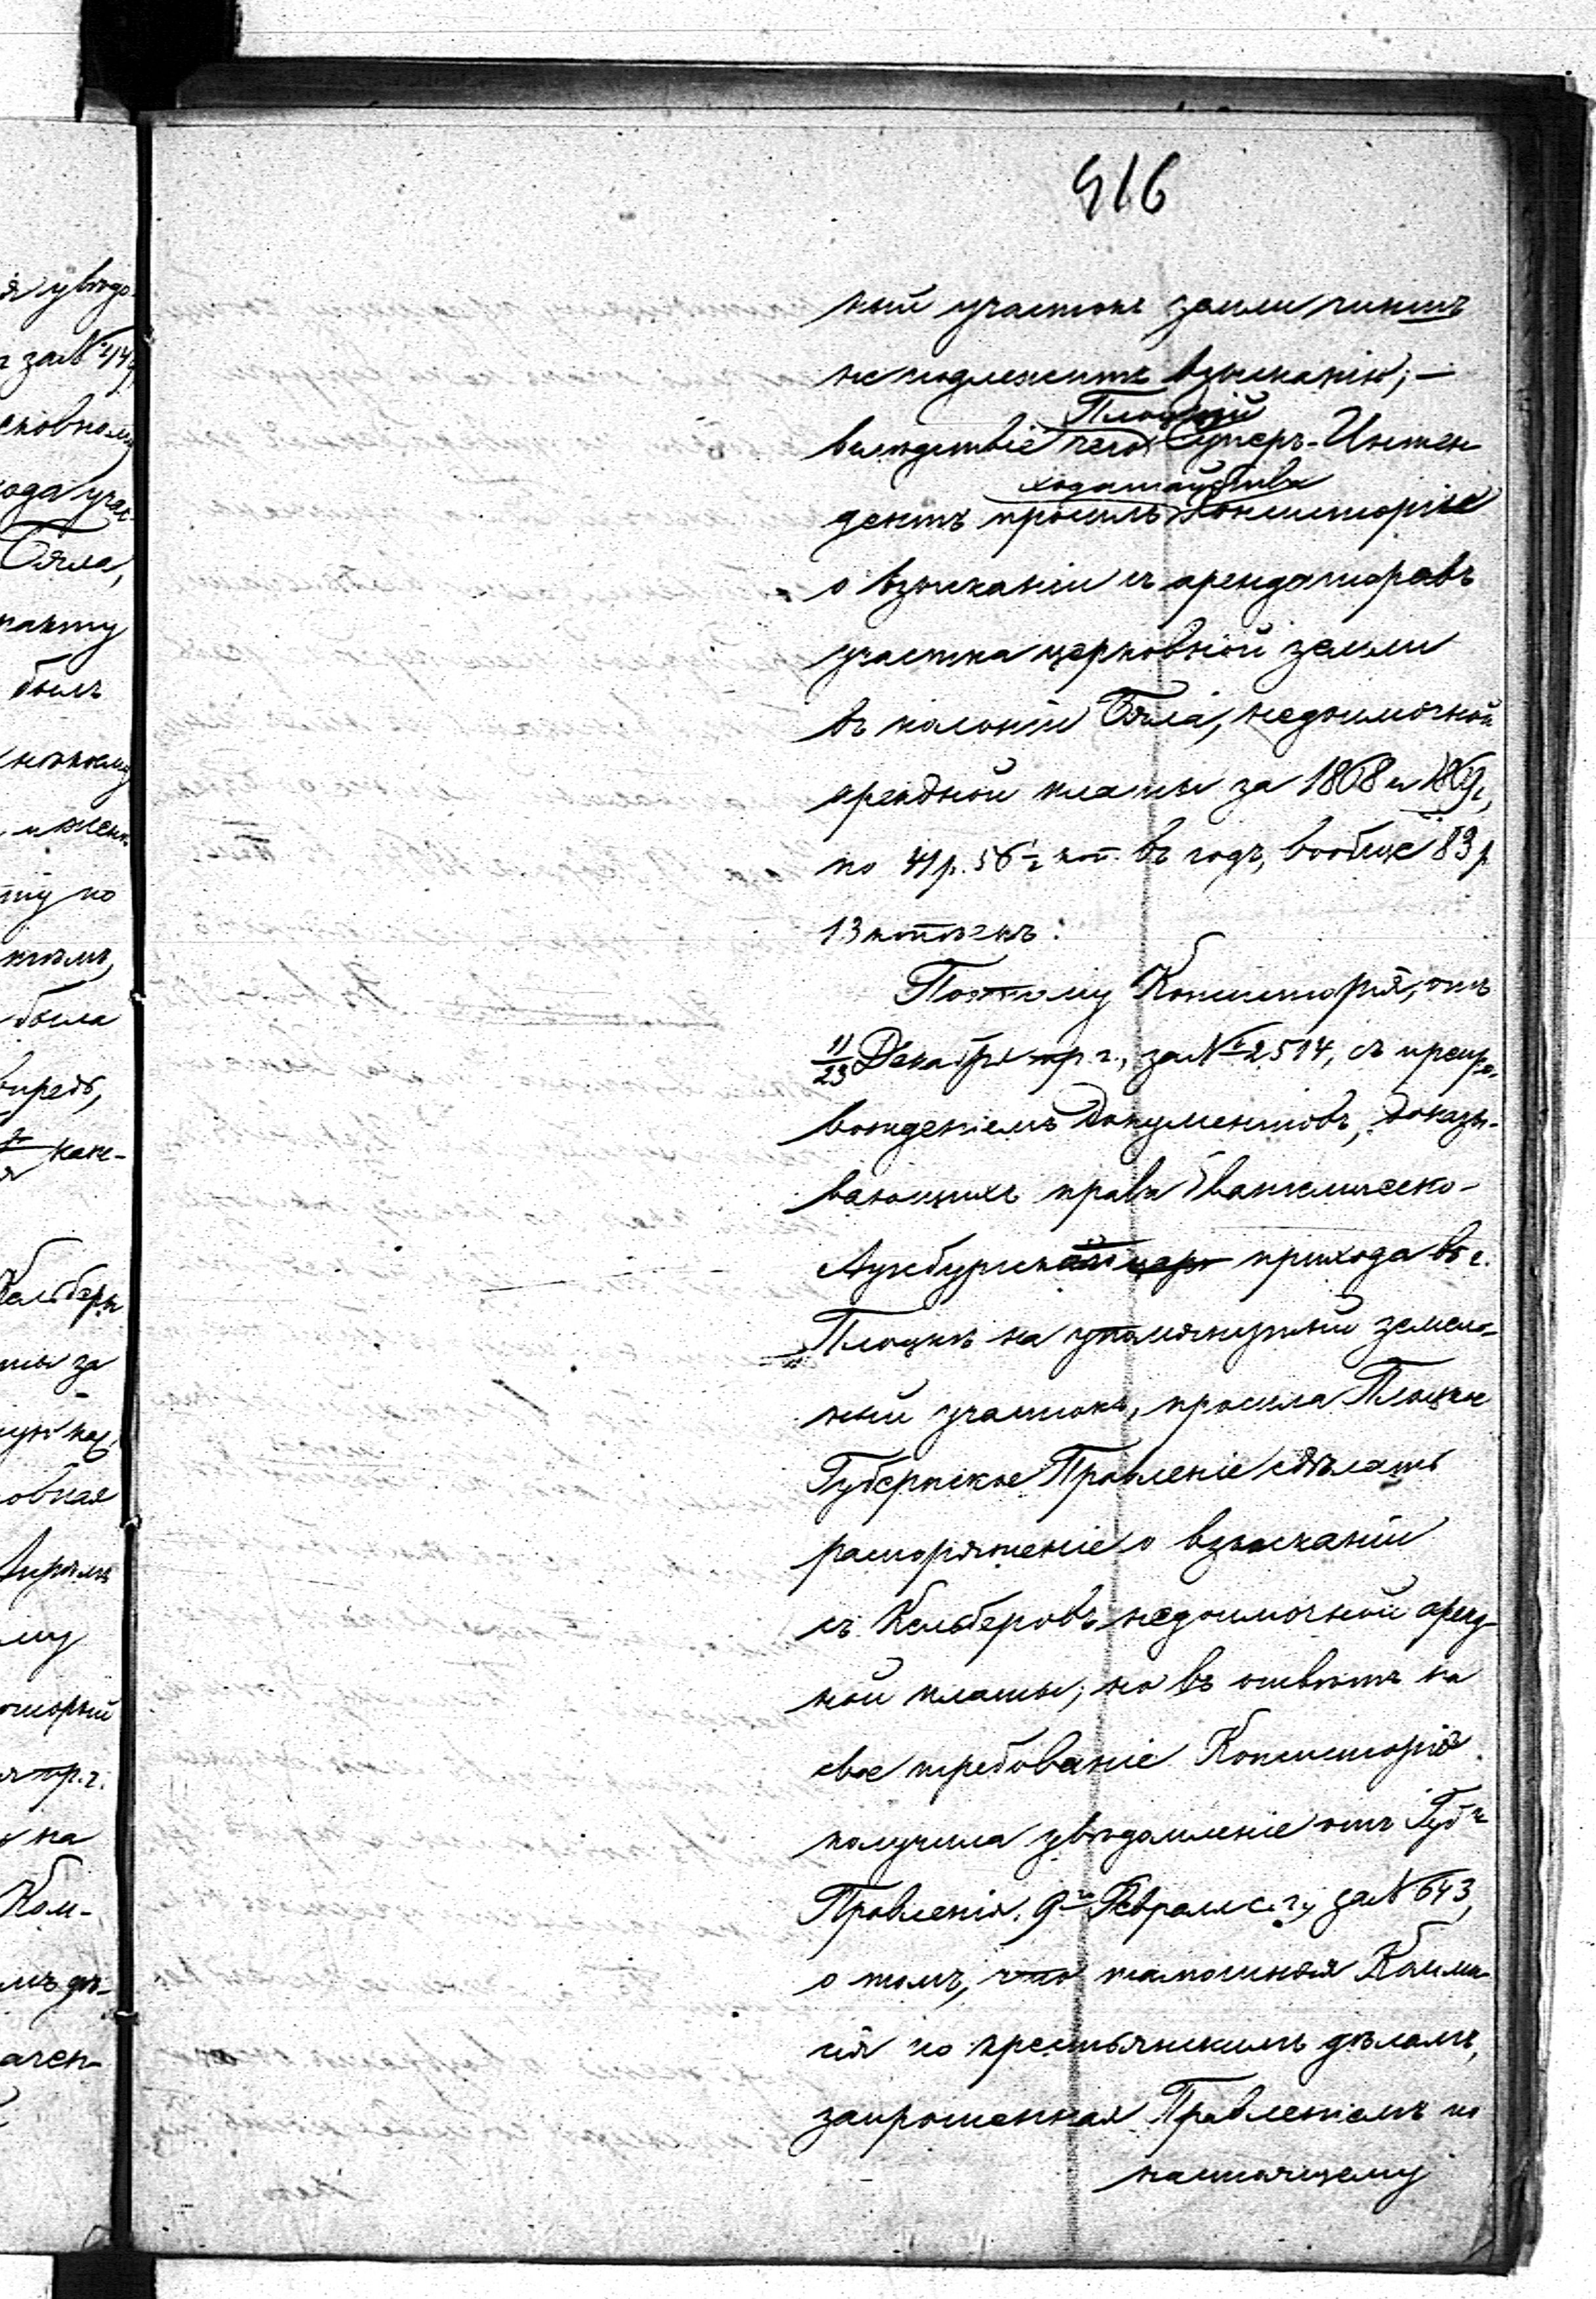 916
ный участокъ земли чиншъ
не подлежитъ взысканію; —
Плоцкій
вслѣдствіе чего Суперъ-Интен
ходатайства
дентъ просилъ Консисторіи
о взысканіи съ арендаторовъ
участка церковной земли
въ колоніи Бяла, недоимочной
арендной платы за 1868 и 1869 г.,
по 41 р. 56 1/2 коп. въ годъ, вообще 83 р.
13 копѣекъ:
Поэтому Консисторія, отъ
11/23 Декабря пр. г., за № 2514, съ препро-
вожденіемъ документовъ, доказы-
вающихъ права Евангелическо-
Аугсбургскаго прихода въ г.
Плоцкѣ на упомянутый земель-
ный участокъ, просила Плоцкое
Губернское Правленіе сдѣлать
распоряженіе о взысканіи
съ Кельберовъ недоимочной аренд-
ной платы; но въ отвѣтъ на
свое требованіе Консисторія
получила увѣдомленіе отъ Губ.
Правленія, 9го Февраля с. г., за № 643,
о томъ, что тамошняя Коммис-
сія по крестьянскимъ дѣламъ,
запрошенная Правленіемъ по
настоящему
я увѣдо-
за № 414
сковному
хода учас-
Бяла,
былъ
ту по
была
впредь,
Кельберы
ты за
овная
му
оторый
пр. г.
на
Ком-